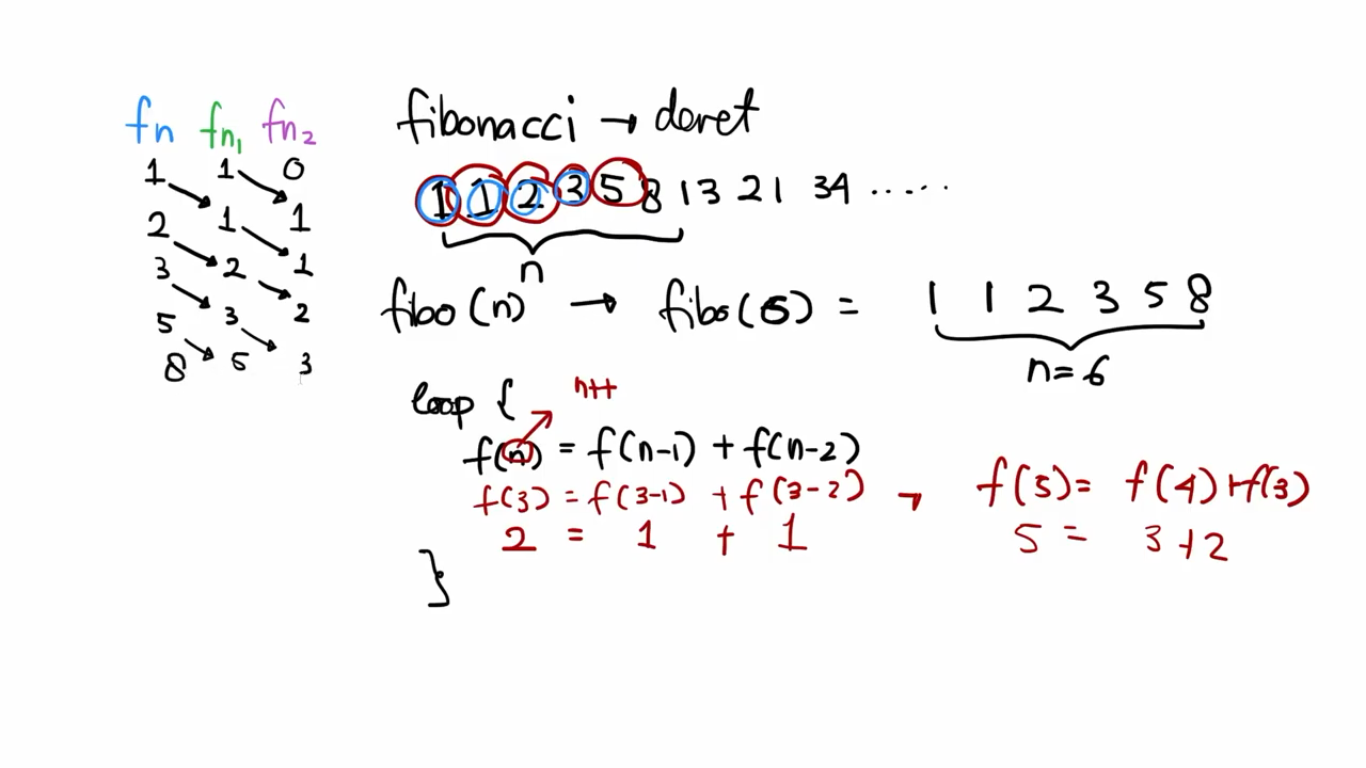 fn fn₁ fn₂
1 1 0
2 1 1
3 2 1
5 3 2
8 5 3
fibonacci → deret
1 1 2 3 5 8 13 21 34 ......
n
fibo (n) → fibo(6) = 1 1 2 3 5 8
n=6
loop {
n++
f(n) = f(n-1) + f(n-2)
f(3) = f(3-1) + f(3-2) → f(5) = f(4)+f(3)
2 = 1 + 1
5 = 3+2
}